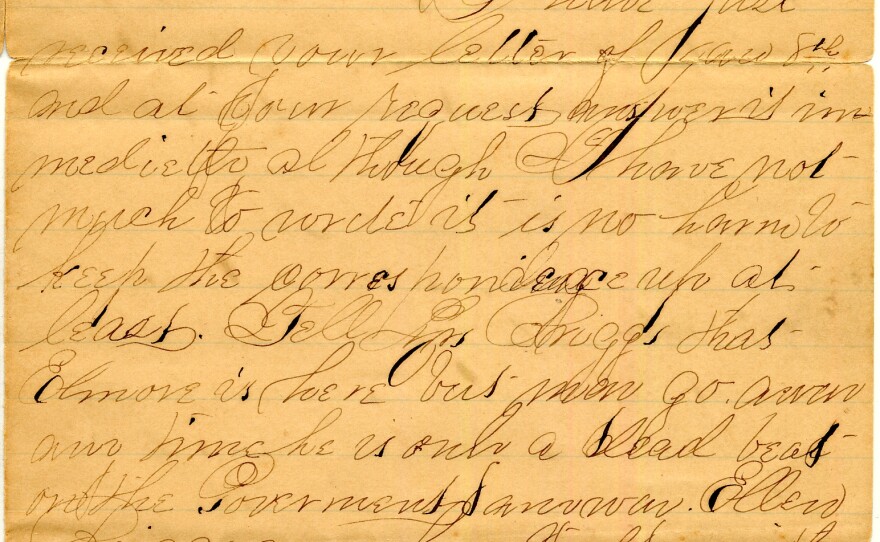 I have just
received your letter of Janu 8th
and at your request answer it im
medietly al though I have not
much to wrete it is no harm to
keep the correspondence up at
least. Tell Briggs that
Elmore is here but may go away
any time he is only a dead beat
on the Goverment anyway. Ellen